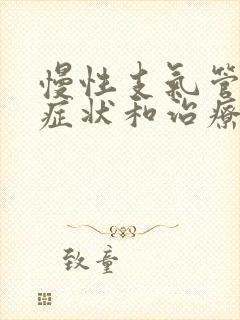 慢性支氣管
症状和治療
致童